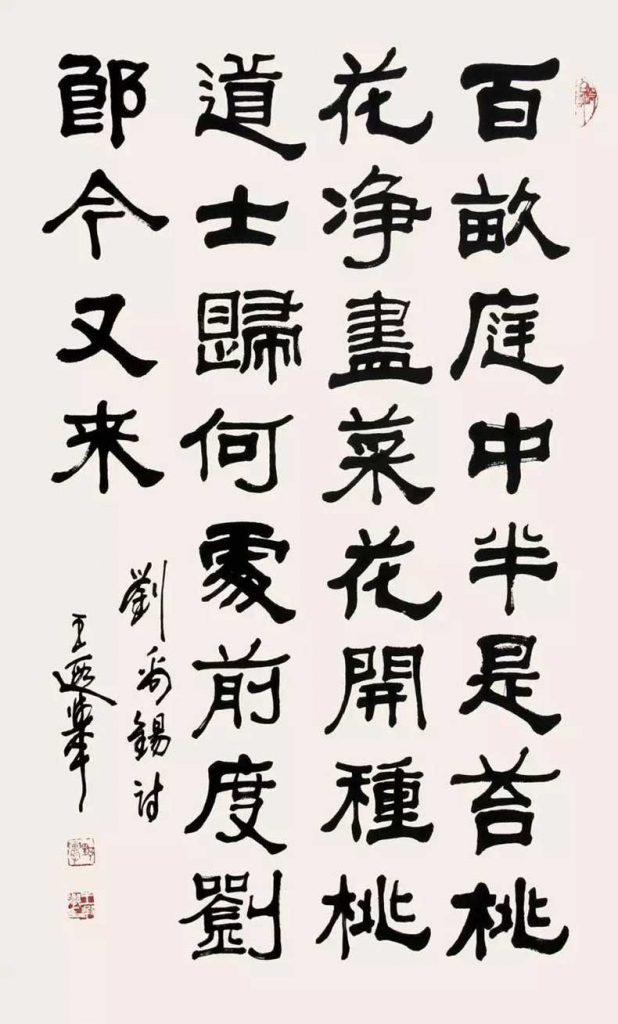 百畝庭中半是苔桃
花净盡菜花開種桃
道士歸何處前度劉
郎今又来
劉禹錫詩
王遐舉